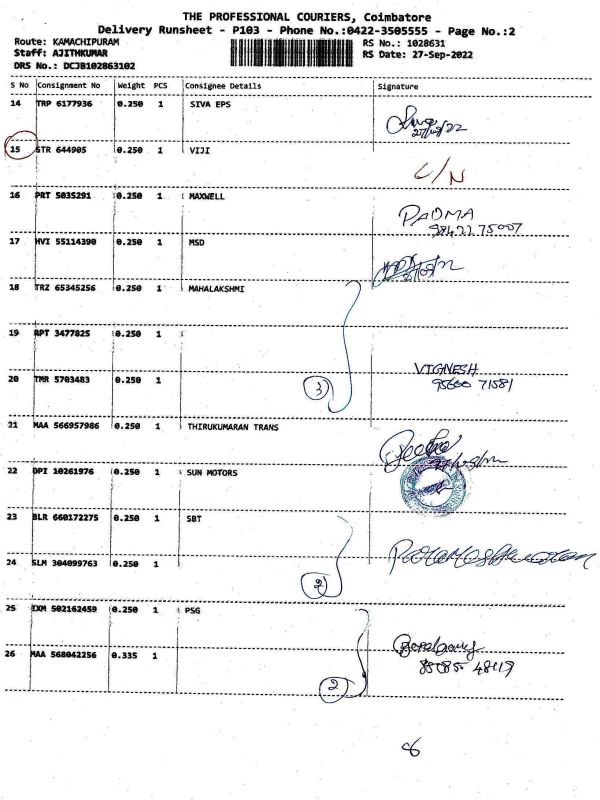 THE PROFESSIONAL COURIERS, Coimbatore
Delivery Runsheet - P103 - Phone No.:0422-3505555 - Page No.:2
Route: KAMACHIPURAM RS No.: 1028631
Staff: AJITHKUMAR RS Date: 27-Sep-2022
DRS No.: DCJB102863102
S No Consignment No Weight PCS Consignee Details Signature
14 TRP 6177936 0.250 1 SIVA EPS
27/09/22
15 STR 644905 0.250 1 VIJI
C/N
16 PRT 5035291 0.250 1 MAXWELL
PADMA
98422 75007
17 HVI 55114390 0.250 1 MSD
18 TRZ 65345256 0.250 1 MAHALAKSHMI
19 RPT 3477825 0.250 1
VIGNESH
20 TMR 5703483 0.250 1 3 95660 71581
21 MAA 566957986 0.250 1 THIRUKUMARAN TRANS
22 DPI 10261976 0.250 1 SUN MOTORS
23 BLR 660172275 0.250 1 SBT
24 SLM 304099763 0.250 1
2
25 IXM 502162459 0.250 1 PSG
26 MAA 568042256 0.335 1
2
8